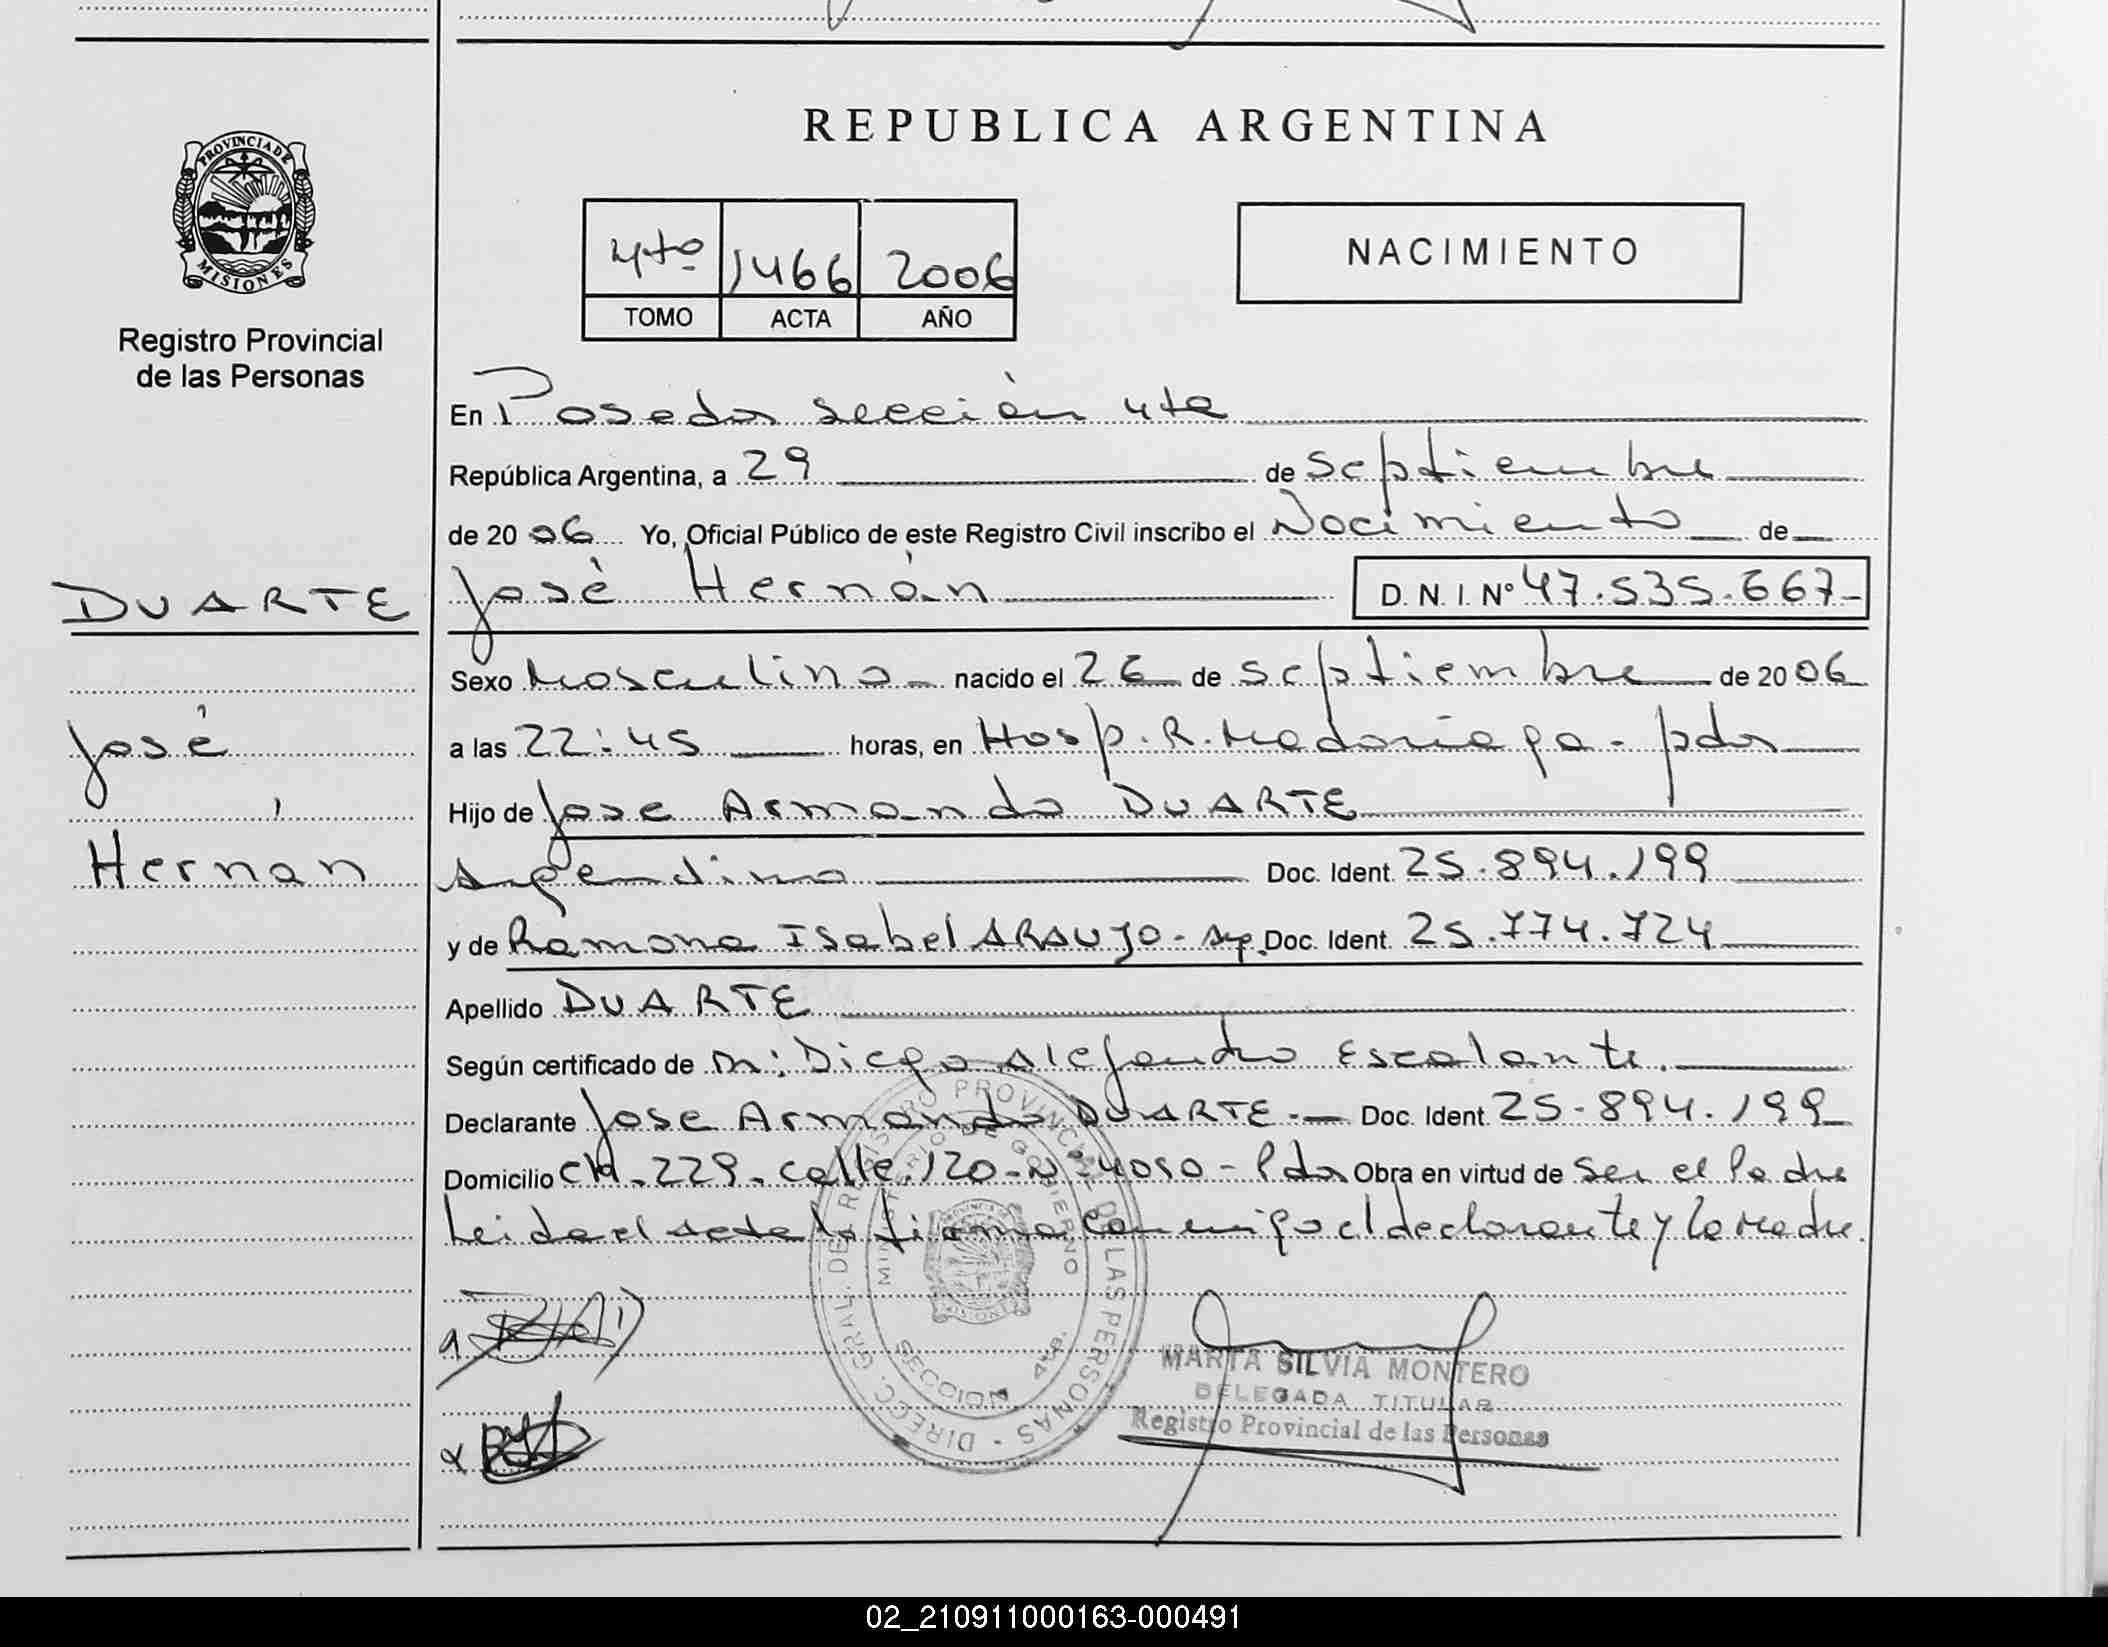 REPUBLICA ARGENTINA
PROVINCIA DE
MISIONES
Registro Provincial
de las Personas
4to 1466 2006
TOMO ACTA AÑO
NACIMIENTO
En Posadas sección 4ta
República Argentina, a 29 de septiembre
de 2006 Yo, Oficial Público de este Registro Civil inscribo el Nacimiento de
DUARTE
José Hernán D.N.I. Nº 47.535.667
Sexo Masculino nacido el 26 de septiembre de 2006
José
a las 22:45 horas, en Hosp. R. Madariaga - pdas
Hijo de Jose Armando DUARTE
Hernán
Argentino Doc. Ident. 25.894.199
y de Ramona Isabel ARAUJO - arg. Doc. Ident. 25.774.724
Apellido DUARTE
Según certificado de m: Diego Alejandro Escalante.
Declarante Jose Armando DUARTE.- Doc. Ident. 25-894.199
Domicilio ch. 229. calle 120-Nº 4050 - Pdas Obra en virtud de ser el Padre
Leida el acta la firma conmigo el declarante y la Madre.
DIRECC. GRAL. DE REGISTRO PROVINCIAL DE LAS PERSONAS -
MINISTERIO DE GOBIERNO
SECCION 4ta.
MARTA SILVIA MONTERO
DELEGADA TITULAR
Registro Provincial de las Personas
02_210911000163-000491